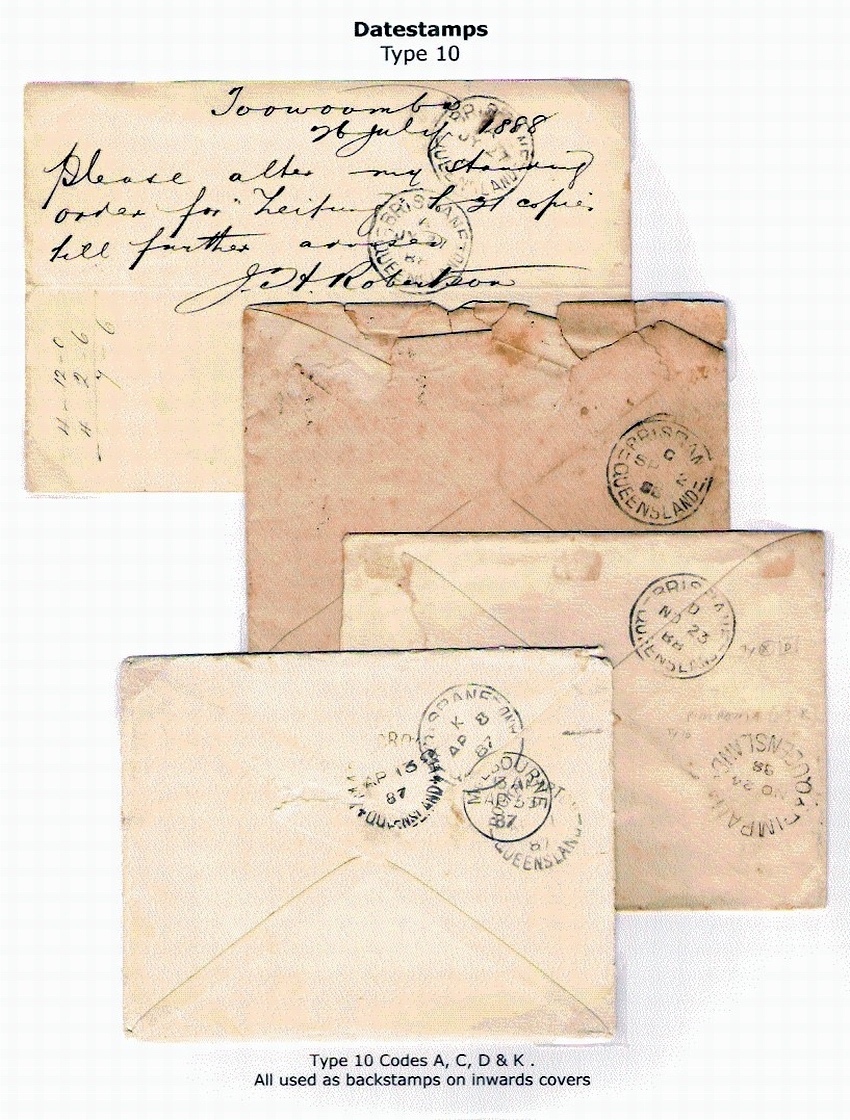 Datestamps
Type 10
Toowoomba
26 July 1888
Please alter my standing
order for "Zeitung" to 21 copies
till further advised
J. A. Robertson
4-12-0
4 2-6
7 6
BRISBANE
JY 27
QUEENSLAND
BRISBANE
A
JY 27
QUEENSLAND
BRISBAN
C
SP 2
88
QUEENSLAND
BRISBANE
D
NO 23
88
QUEENSLAND
PIMPAMA
NO 24
88
QUEENSLAND
BRISBANE
K 8
AP
87
AP 13
87
QUEENSLAND
MELBOURNE
AP 5
87
87
QUEENSLAND
Type 10 Codes A, C, D & K .
All used as backstamps on inwards covers